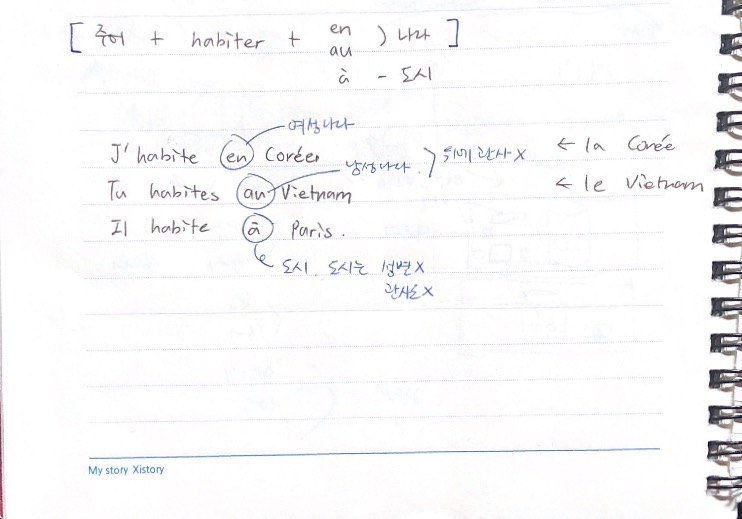 [ 주어 + habiter + en ) 나라 ]
au
à - 도시
여성나라
J'habite en Corée. ← la Corée
남성나라. ) 뒤에 관사 X
Tu habites au Vietnam ← le Vietnam
Il habite à Paris.
도시. 도시는 성별 X
관사도 X
My story Xistory